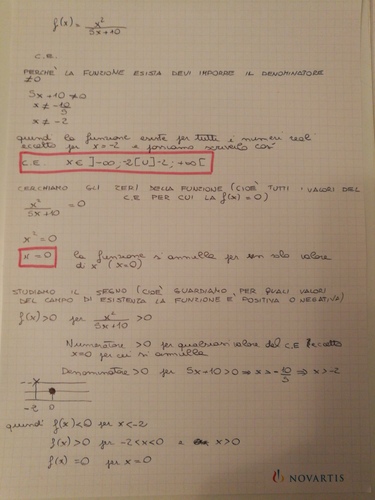 f(x) = x² / 5x+10
C.E.
PERCHÈ LA FUNZIONE ESISTA DEVI IMPORRE IL DENOMINATORE
≠0
5x+10 ≠0
x ≠ -10/5
x ≠ -2
quindi la funzione esiste per tutti i numeri reali
eccetto per x=-2 e possiamo scriverlo così
C.E. x∈ ]-∞;-2[U]-2;+∞[
CERCHIAMO GLI ZERI DELLA FUNZIONE (CIOÈ TUTTI I VALORI DEL
C.E PER CUI LA f(x)=0)
x² / 5x+10 = 0
x² = 0
x = 0 la funzione si annulla per un solo valore
di x (x=0)
STUDIAMO IL SEGNO (CIOÈ GUARDIAMO PER QUALI VALORI
DEL CAMPO DI ESISTENZA LA FUNZIONE È POSITIVA O NEGATIVA)
f(x)>0 per x² / 5x+10 >0
Numeratore >0 per qualsiasi valore del C.E eccetto
x=0 per cui si annulla
Denominatore >0 per 5x+10>0 ⇒ x>-10/5 ⇒ x>-2
-2 0
quindi f(x)<0 per x<-2
f(x)>0 per -2<x<0 e x>0
f(x)=0 per x=0
NOVARTIS